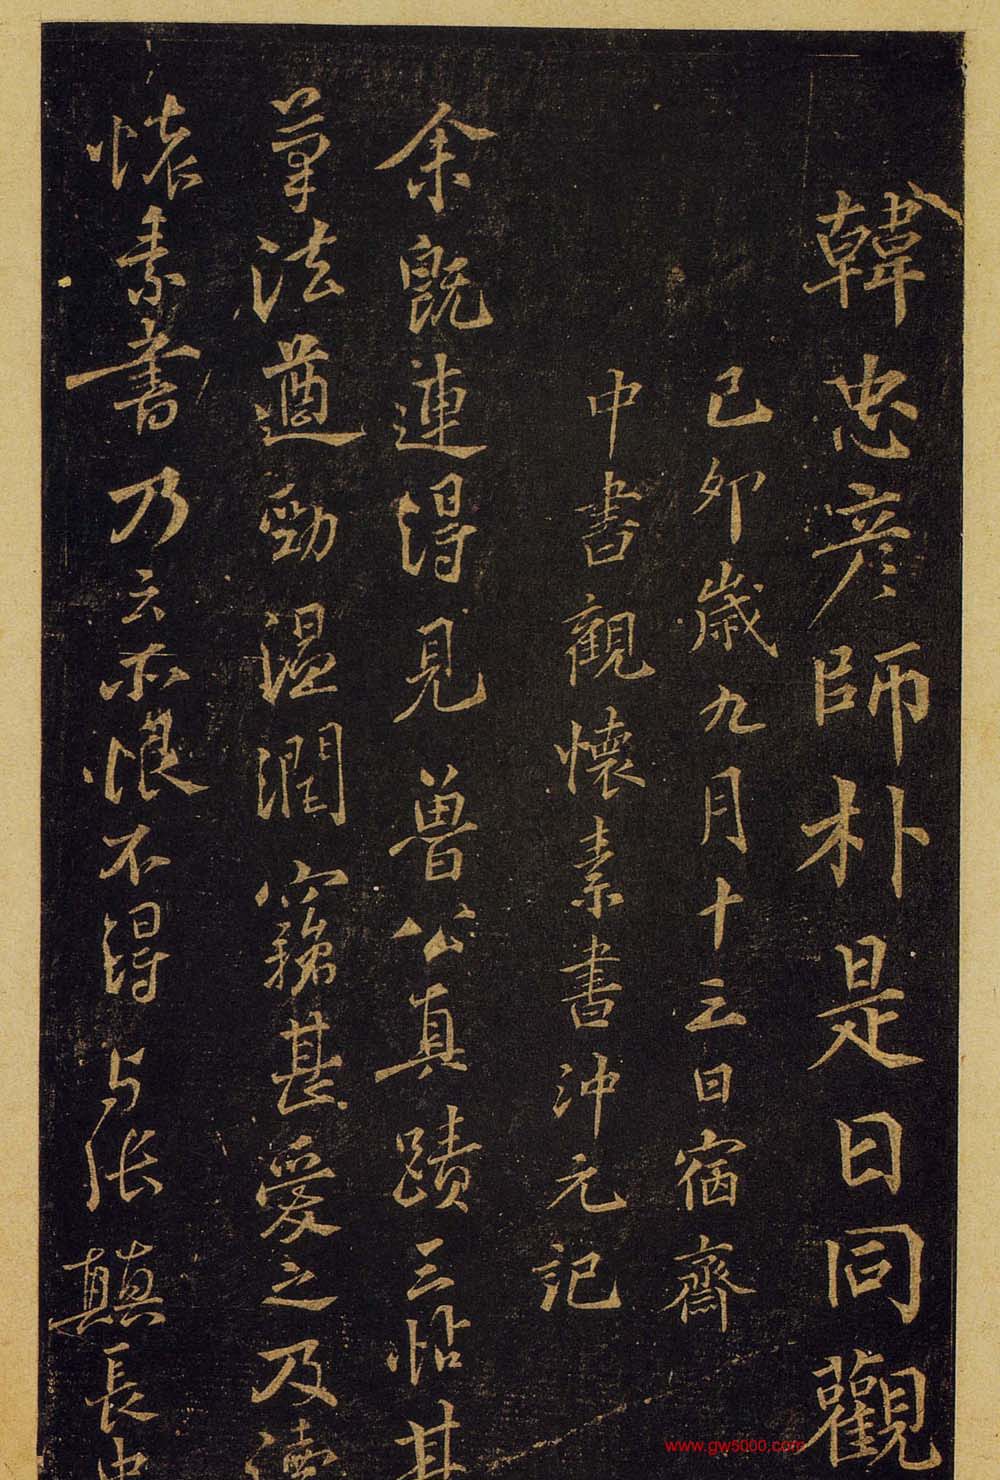 韓忠彦師朴是日同觀
己卯歲九月十三日宿齋
中書觀懷素書沖元記
余既連得見魯公真蹟三帖其
筆法遒勁溫潤竊甚愛之及
懷素書乃云亦恨不得與張顛長史
www.gw5000.com